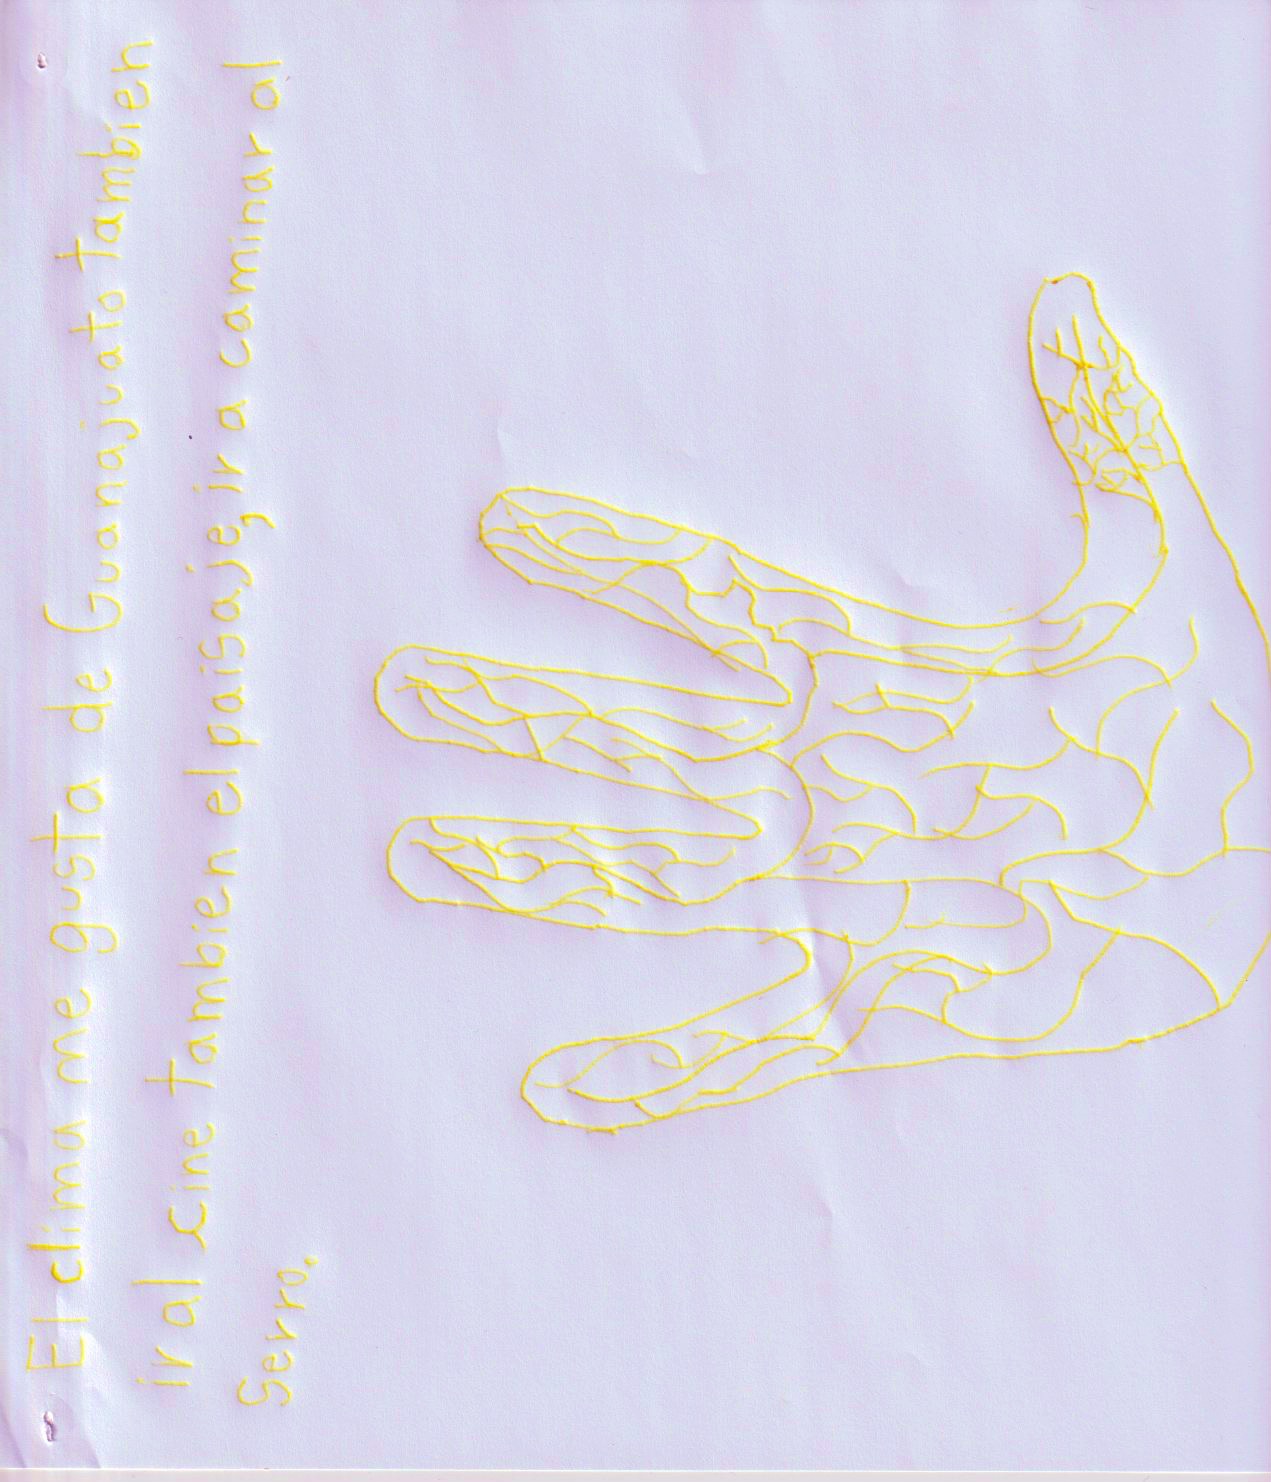 El clima me gusta de Guanajuato tambien
ir al cine tambien el paisaje, ir a caminar al
Serro.